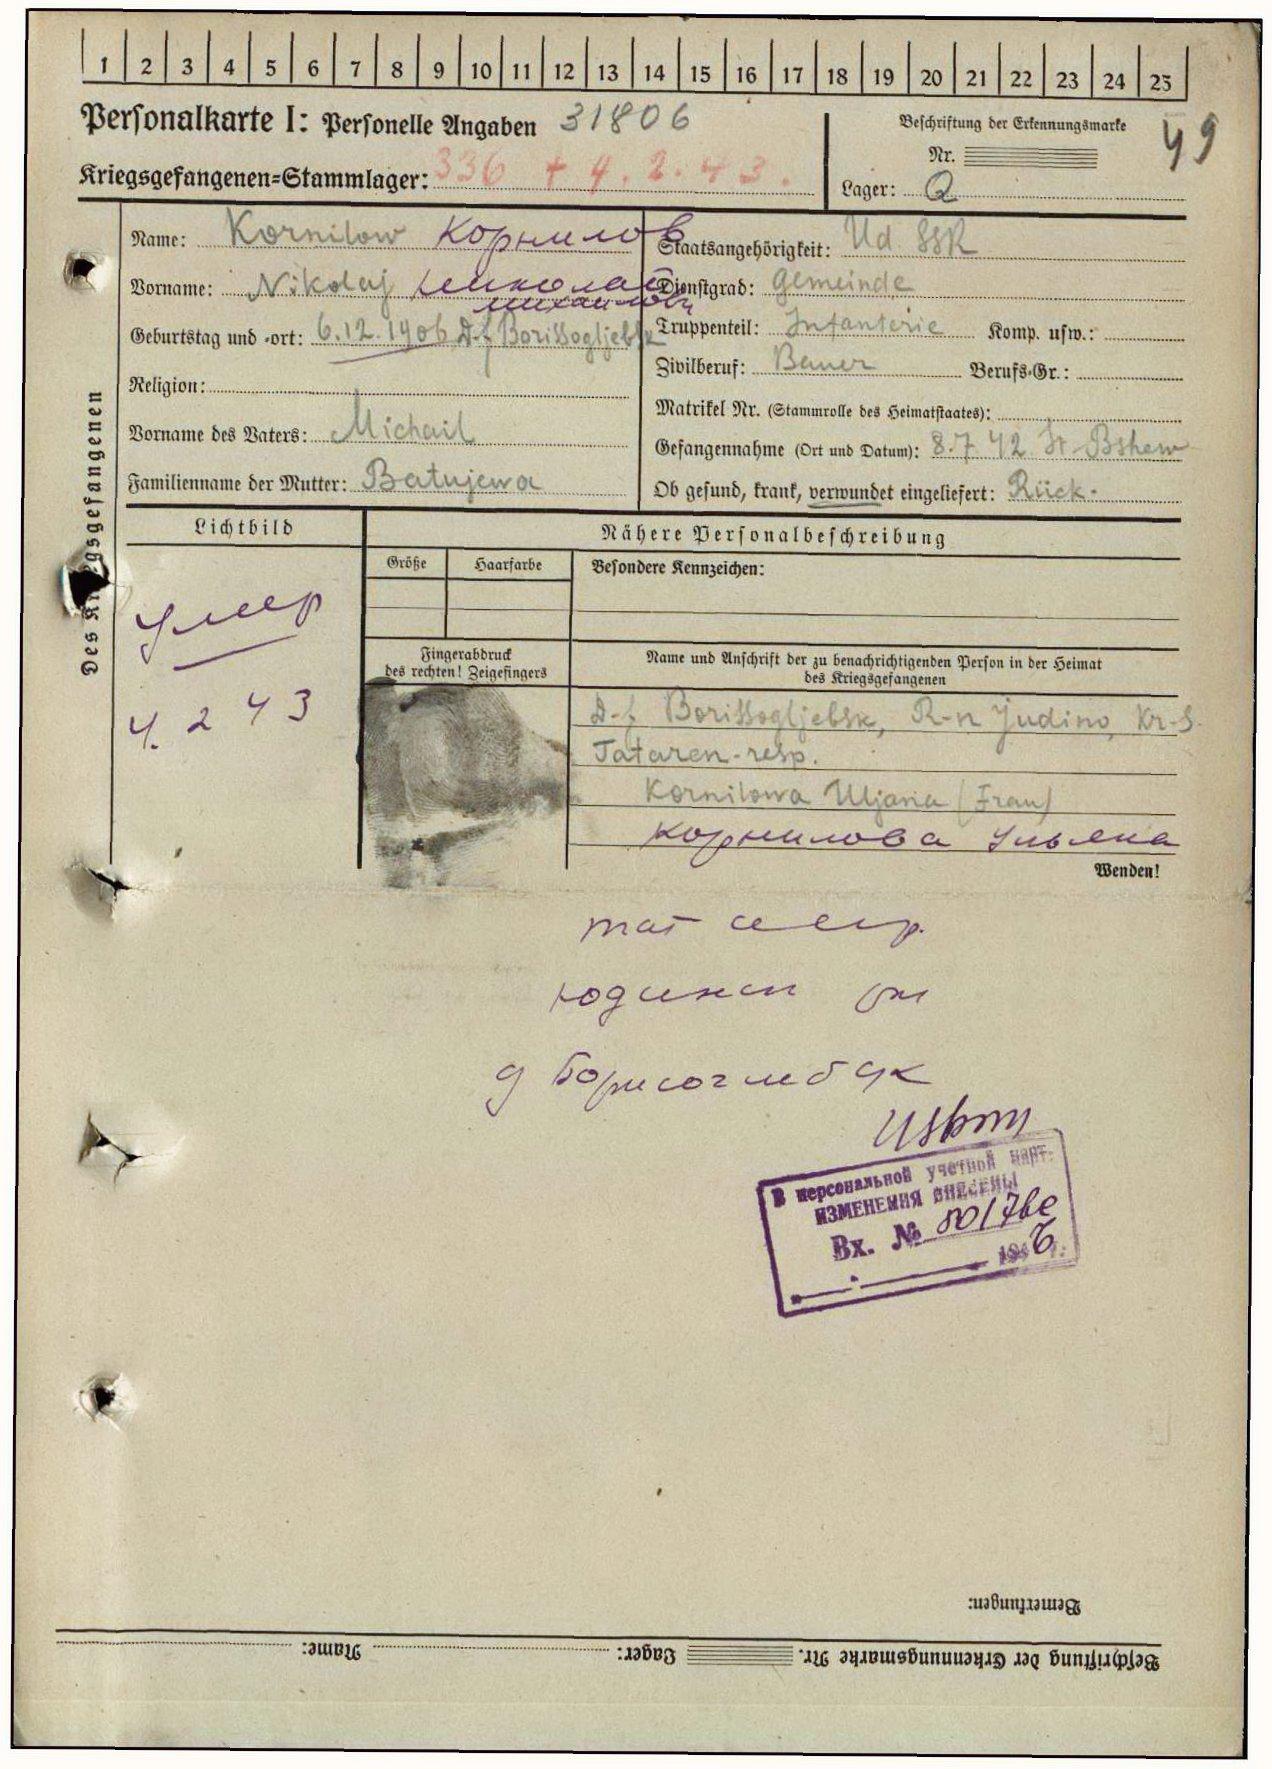 1 2 3 4 5 6 7 8 9 10 11 12 13 14 15 16 17 18 19 20 21 22 23 24 25
Personalkarte I: Personelle Angaben 31806
Beschriftung der Erkennungsmarke
49
Nr.
Kriegsgefangenen=Stammlager: 336 + 4.2.43.
Lager: Q
Des Kriegsgefangenen
Name: Kornilow Корнилов
Vorname: Nikolaj Николай
Михайлови
Geburtstag und -ort: 6.12.1906 D-f Borissogljebsk
Religion:
Vorname des Vaters: Michail
Familienname der Mutter: Batujewa
Staatsangehörigkeit: Ud SSR
Dienstgrad: Gemeinde
Truppenteil: Infanterie Komp. usw.:
Zivilberuf: Bauer Berufs-Gr.:
Matrikel Nr. (Stammrolle des Heimatstaates):
Gefangennahme (Ort und Datum): 8.7.42 St-Bshew
Ob gesund, krank, verwundet eingeliefert: Rück.
Lichtbild
умер
4. 2 43
Nähere Personalbeschreibung
Größe
Haarfarbe
Besondere Kennzeichen:
Fingerabdruck
des rechten! Zeigefingers
Name und Anschrift der zu benachrichtigenden Person in der Heimat
des Kriegsgefangenen
D-f Borissogljebsk, R-n Judino, Kr-S.
Tataren-resp.
Kornilowa Uljana (Frau)
Корнилова Ульяна
Wenden!
тат
юдинск рн
д Борисоглебск
В персональной учетной карт.
ИЗМЕНЕНИЯ ВНЕСЕНЫ
Вх. №
194 6 г.
Bemerkungen:
Beschriftung der Erkennungsmarke Nr. Lager: Name: